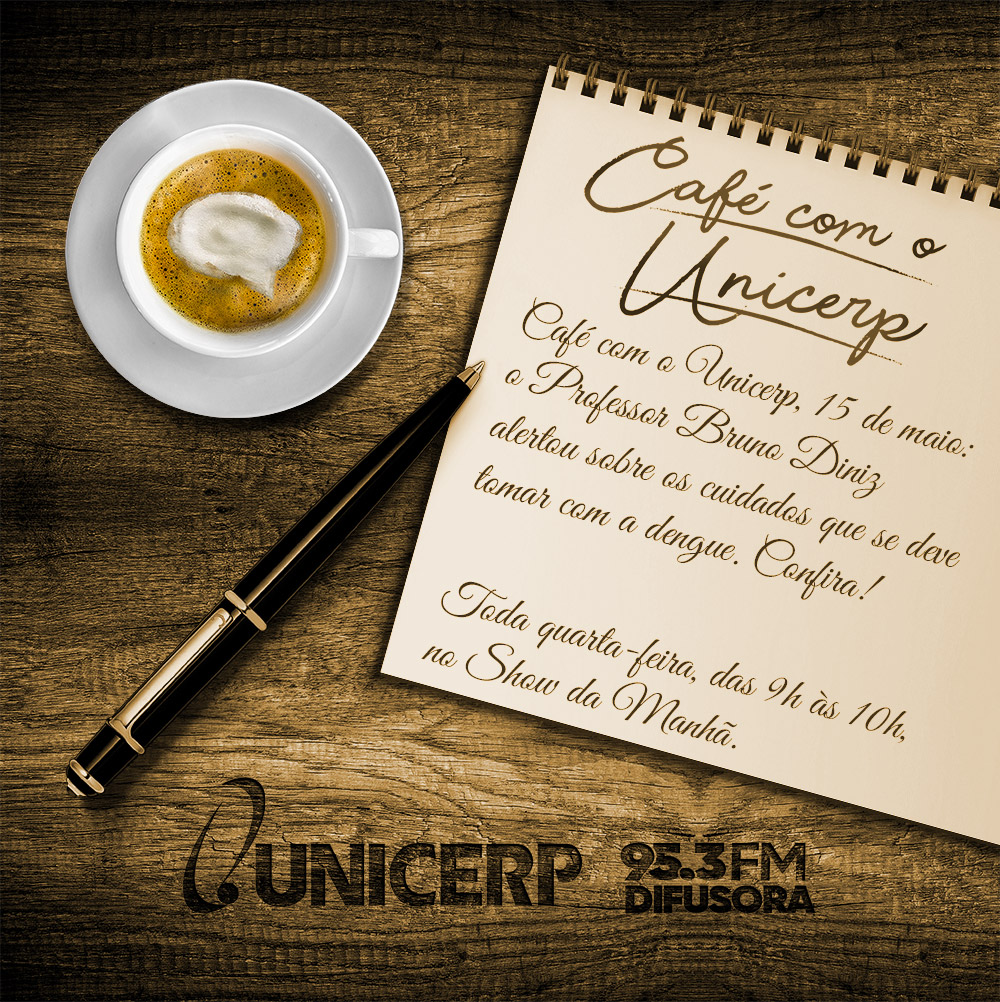 Café com o
Unicerp
Café com o Unicerp, 15 de maio:
o Professor Bruno Diniz
alertou sobre os cuidados que se deve
tomar com a dengue. Confira!
Toda quarta-feira, das 9h às 10h,
no Show da Manhã.
UNICERP
95.3 FM
DIFUSORA